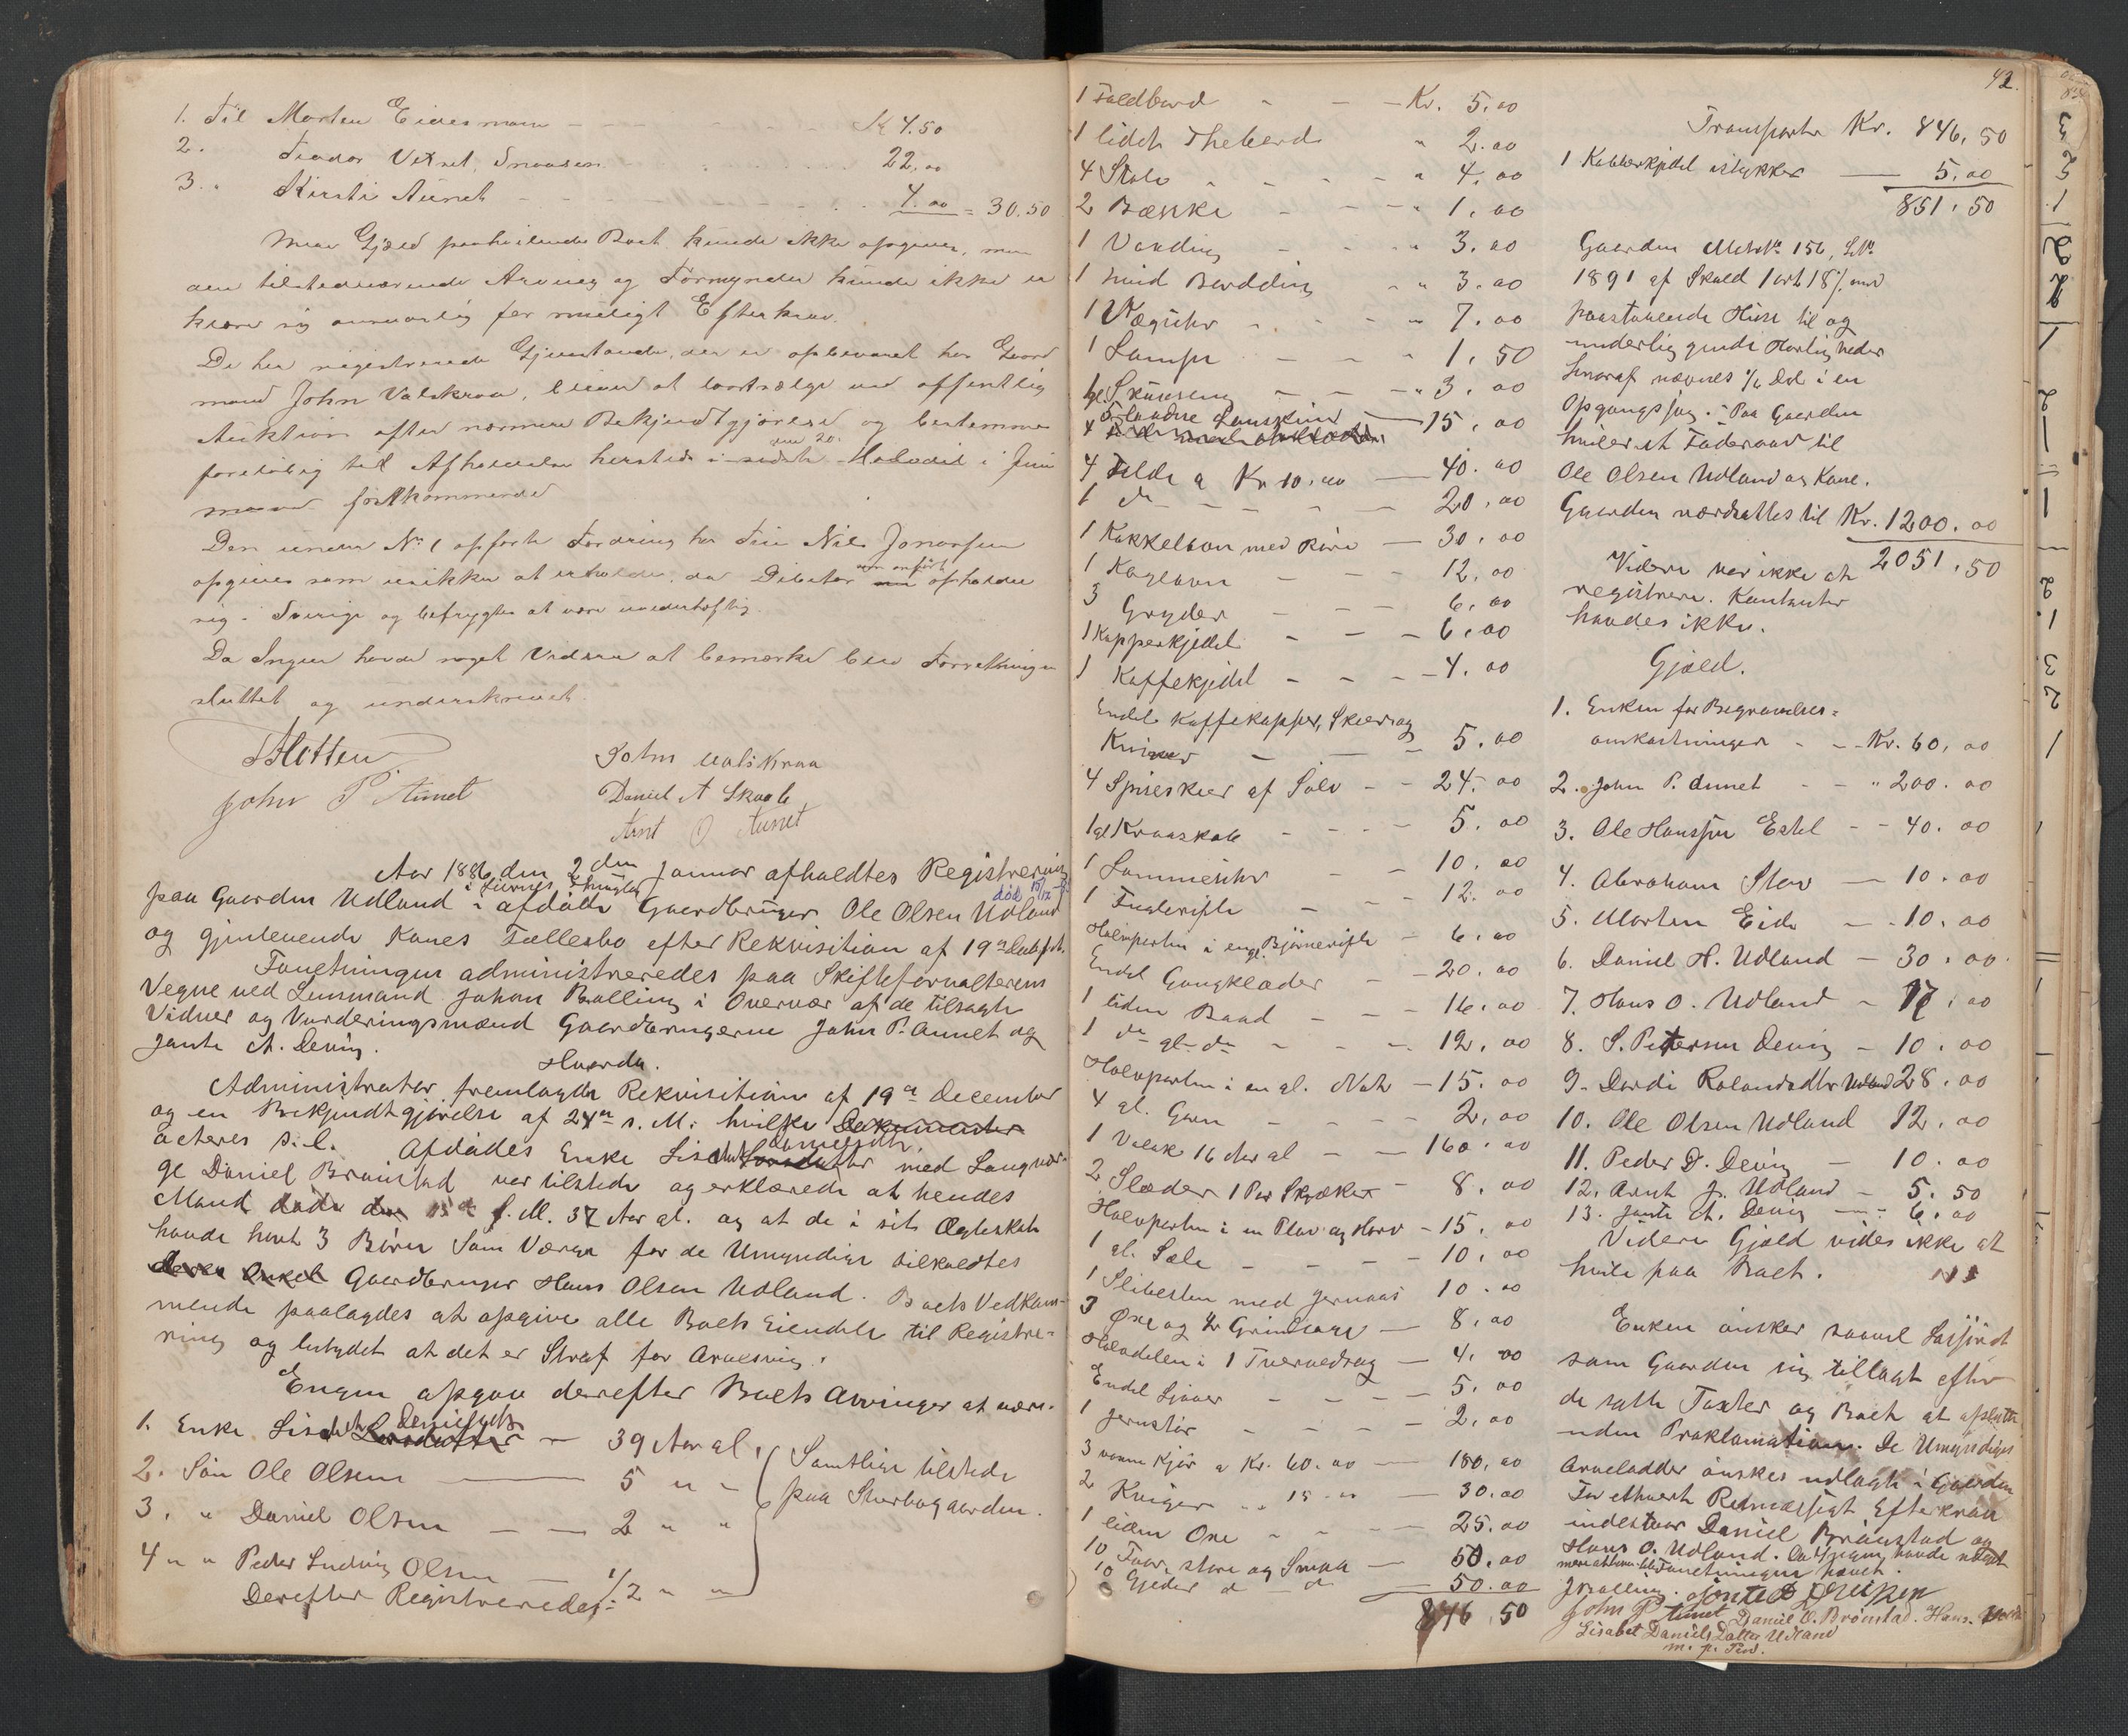 1. Til Morten Eidesmoen - - - Kr 4.50
2. Teodor Vetret, Snaasen - - 22,00
3. Kirsti Aunet - - - 4.00 = 30.50
Mere Gjæld paahvilende Boet kunde ikke opgives, men
den tilstedeværende Arving og Formynder kunde ikke er
klære sig ansvarlig for muligt Efterkrav.
De her registrerede Gjenstande, der er opbevaret hos Gaard
mand John Valskraa, bliver at bortsælge ved offentlig
Auktion efter nærmere Bekjendtgjørelse og bestemmes
foreløbig til Afholdelse hersteds i sidste Halvdel i Juni
den 20.
maaned førstkommende
Den under No 1 opførte Fordring hos Nils Jonassen
opgives som usikker at erholde, da Debitor som anført opholder
sig i Sverige og befrygtes at være uvederhæftig.
Da Ingen havde noget Videre at bemærke blev Forretningen
sluttet og underskrevet.
Hotten
John Valskraa
John P Aunet
Daniel A Skaale
Arnt O Aunet
Aar 1886 den 2den Januar afholdtes Registrering
i Livrnes Thinglag død 15/12
paa Gaarden Udland i afdøde Gaardbruger Ole Olsen Udland
og gjenlevende Kones Fællesbo efter Rekvisition af 19de
Forretningen administreredes paa Skifteforvalterens
Vegne ved Lensmand Johan Bolling i Overvær af de tilsagte
Vidner og Vurderingsmænd Gaardbrugerne John P. Aunet og
Jonte A. Deving.
Hvorda.
Administrator fremlagde Rekvisition af 19de December
og en Bekjendtgjørelse af 24de s. M. hvilke Dokumenter
acteres s. l. Afdødes Enke Lisabet Danielsdtr. med Laugvær-
ge Daniel Brønstad var tilstede og erklærede at hendes
Mand døde den 15de f. M. 37 Aar gl. og at de i sit Ægteskab
havde havt 3 Børn Som Værge for de Umyndige tilkaldtes
deres Onkel Gaardbruger Hans Olsen Udland. Boets Vedkom-
mende paalagdes at opgive alle Boets Eiendele til Registre-
ring og betydet at det er Straf for Arvesvig.
Enken opgav derefter Boets Arvinger at være.
1. Enke Lisabet Danielsdtr — 39 Aar gl.
2. Søn Ole Olsen — 5 " "
3. " Daniel Olsen — 2 " "
4 " " Peder Ludvig Olsen — 1/2 " "
Samtlige tilstede
paa Sterbogaarden.
Derefter Registreredes:
42.
1 Foldbord - - Kr. 5.00
1 lidet Thebord " 2.00
4 Stole - - " 4.00
2 Bænke - - " 1.00
1 Vanding - - " 3.00
1 hvid Bordding " " 3.00
1 Væguhr - - " 7.00
1 Lampe - - " 1.50
1 gl. Skindseng - - " 3.00
4 — 15.00
4 Felde a Kr. 10.00 — 40.00
1 do - - - 20.00
1 Kakkelovn med Rør — 30.00
1 Kogeovn - - 12.00
3 Gryder - - 6.00
1 Kopperkjedel - - 6.00
1 Kaffekjedel - - 4.00
Endel Kaffekopper, Skeer og
Kniver - - 5.00
4 Spiseskeer af Sølv - - 24.00
1 gl Kraaskab - - 5.00
1 Lommeuhr - - 10.00
1 Fuglerifle - - 12.00
Halvparten i en gl. Bjørnerifle - 6.00
Endel Gangklæder - 20.00
1 liden Baad - - 16.00
1 do gl. do - - 12.00
Halvparten i en gl. Not - 15.00
4 gl. Garn - - 2.00
1 Valak 16 Aar gl - - 160.00
2 Slæder 1 Par Skjæker - 8.00
Halvparten i en Plov og Harv - 15.00
1 gl. Sæle - - 10.00
1 Slibesten med Jernaas 10.00
3 Øxe og Grindsage — 8.00
Halvdelen i 1 Tverredrag — 4.00
Endel Ljaaer - - 5.00
1 Jernstør - - 2.00
3 Kjør a Kr. 60.00 — 180.00
2 Kviger " " 15 " " — 30.00
1 liden Oxe - - 25.00
10 Faar, store og Smaa — 50.00
10 Gjeder do - do — 50.00
846.50
Transporter Kr. 846.50
1 Kobberkjedel istykker — 5.00
851.50
Gaarden Matr.No. 156, L.No.
1891 af Skyld 1 ort 18 /. med
paastaaende Huse til og
underliggende Herligheder
hvoraf nævnes 1/6 Del i en
Opgangssag. - Paa Gaarden
hviler et Føderaad til
Ole Olsen Udland og Kone.
Gaarden værdsattes til Kr. 1200.00
2051.50
Videre var ikke at
registrere. Kontanter
havdes ikke.
Gjæld.
1. Enken for Begravelses=
omkostninger - - Kr. 60.00
2. John P. Aunet - - " 200.00
3. Ole Hanssen Estil - - 40.00
4. Abraham Slov — 10.00
5. Morten Eide - - 10.00
6. Daniel H. Udland — 30.00
7. Hans O. Udland - 17.00
8. S. Petersen Deving - 10.00
9. Dordi Rolandsdtr Udland 28.00
10. Ole Olsen Udland 12.00
11. Peder D. Deving - 10.00
12. Arnt J. Udland - 5.50
13. Jonte A. Deving - 6.00
Videre Gjæld vides ikke at
hvile paa Boet.
Enken ønsker saavel Løsøret
som Gaarden sig tillagt efter
de satte Taxter og Boet at afslutte
uden Proklamation. De Umyndiges
Arvelodder ønskes udlagt i Gaarden
For ethvert Retmæssigt Efterkrav
indestaar Daniel Brønstad og
Hans O. Udland. Da Ingen havde noget
mere at bemærke Forretningen hævet.
JBolling.
John P Aunet Daniel O. Brønstad. Hans.
Lisabet Daniels Datter Udland
m. p. Pen.